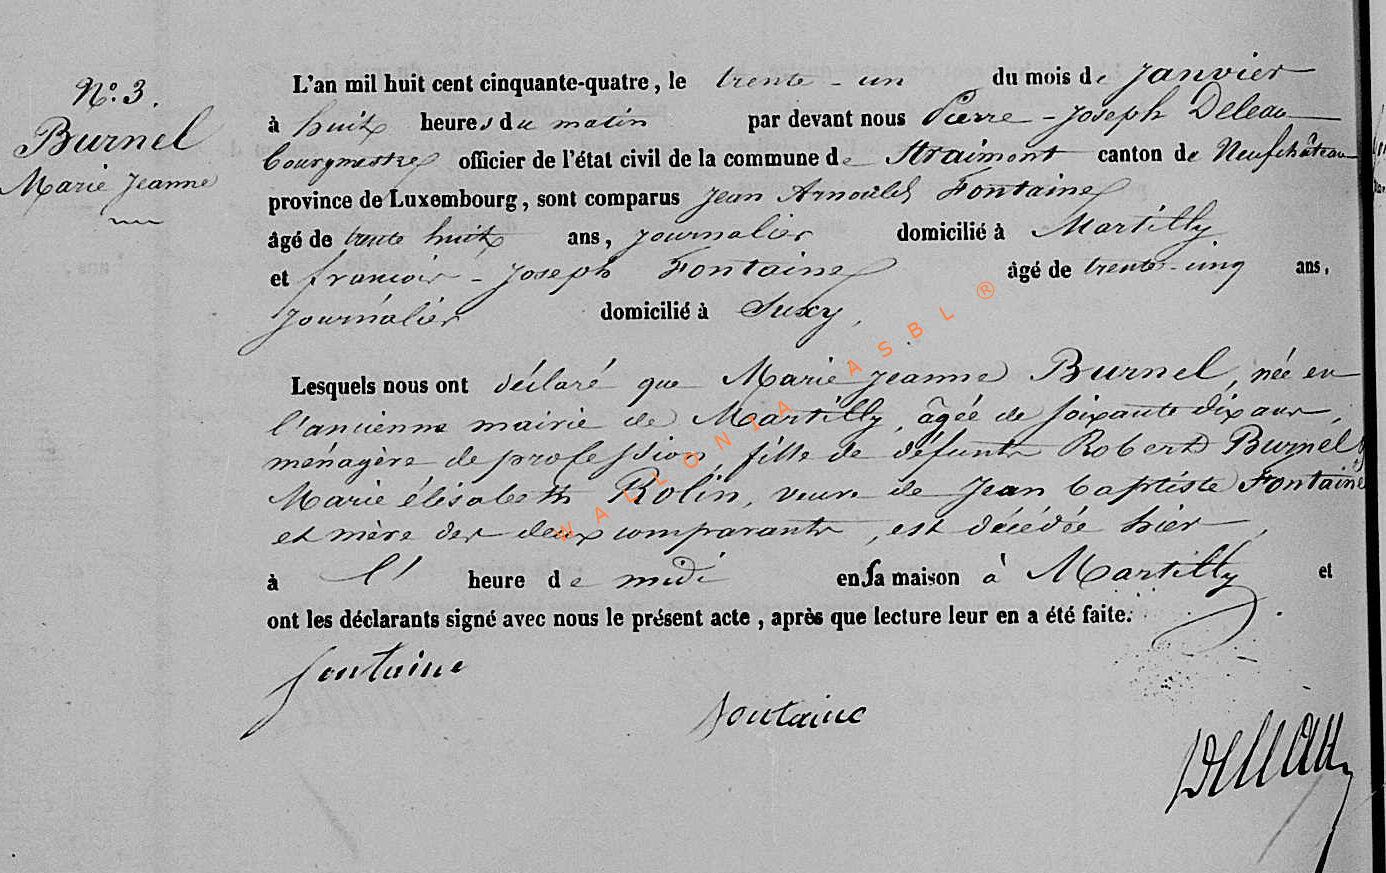 N.o 3.
Burnel
Marie Jeanne
L'an mil huit cent cinquante-quatre, le trente-un du mois de Janvier
à huit heures du matin par devant nous Pierre-Joseph Deleau
bourgmestre officier de l'état civil de la commune de Straimont canton de Neufchâteau
province de Luxembourg, sont comparus Jean Arnould Fontaine
âgé de trente huit ans, journalier domicilié à Martilly
et françois-Joseph Fontaine âgé de trente-cinq ans,
journalier domicilié à Suxy,
Lesquels nous ont déclaré que Marie Jeanne Burnel, née en
l'ancienne mairie de Martilly, âgée de soixante dix ans,
ménagère de profession, fille de défunts Robert Burnel et
Marie élisabeth Rolin, veuve de Jean baptiste Fontaine
et mère des deux comparants, est décédée hier,
à l' heure de midi en sa maison à Martilly et
ont les déclarants signé avec nous le présent acte, après que lecture leur en a été faite.
fontaine
fontaine
Deleau
WALLONIA ASBL ®